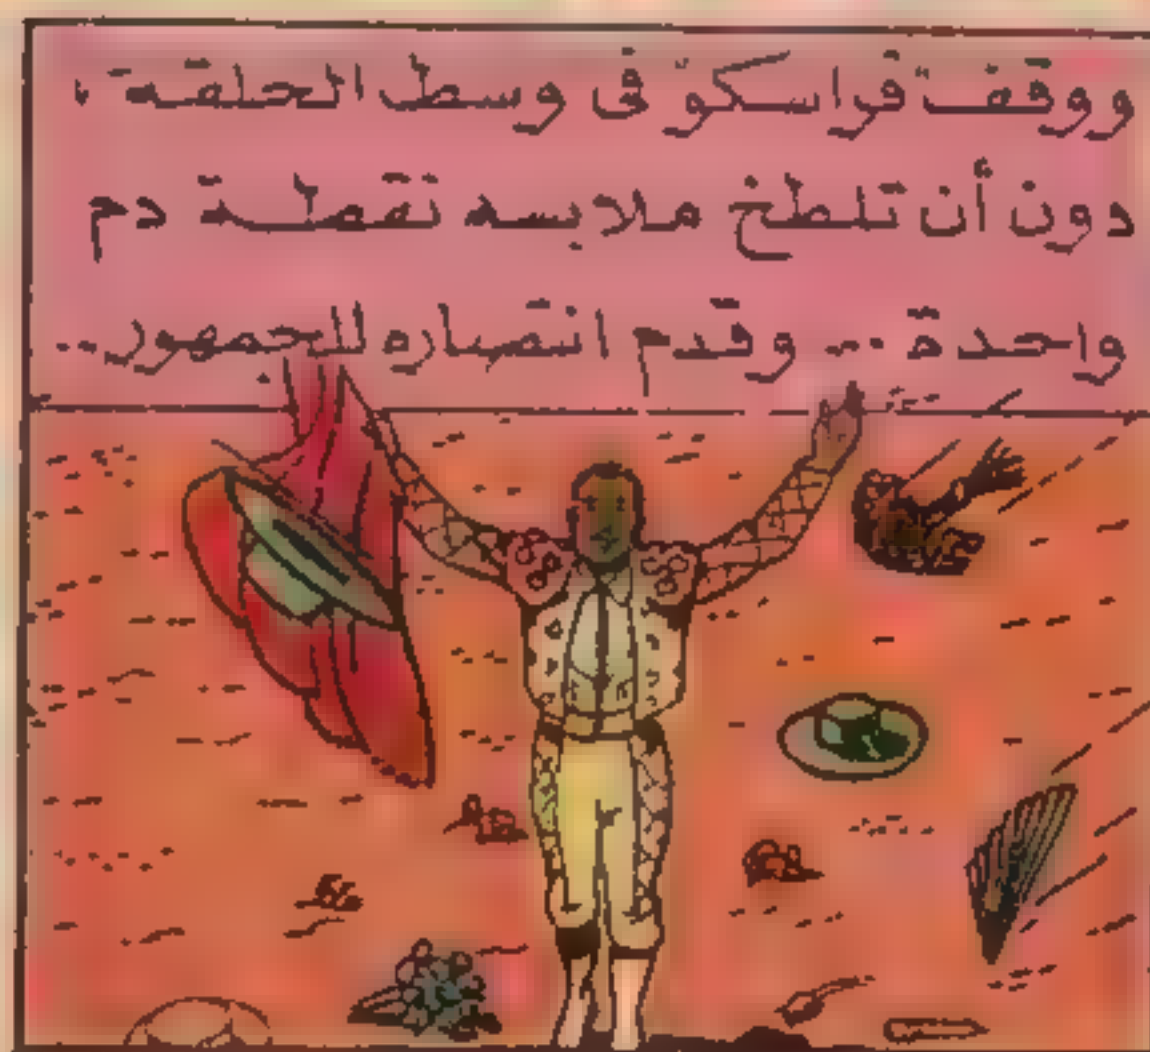 ووقف "فراسكو" فى وسط الحلقة ،
دون أن تلطخ ملابسه نقطة دم
واحدة ... وقدم انتصاره للجمهور ..